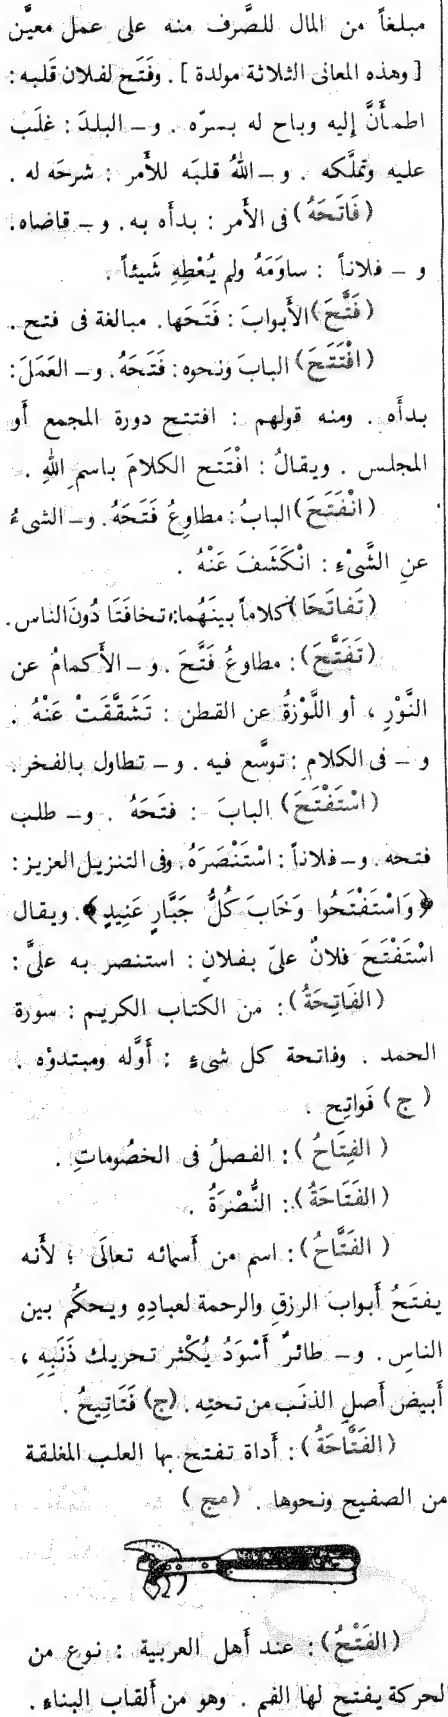 مبلغاً من المال للصَّرف منه على عمل معيَّن
[ وهذه المعانى الثلاثة مولدة ] . وفَتَح لفلان قَلبه :
اطمأَنَّ إليه وباح له بسرّه . و – البلدَ : غلَب
عليه وتملَّكه . و – اللهُ قلبَه للأَمر : شرحَه له .
( فَاتَحَهُ ) فى الأَمر : بدأَه به . و – قاضاه .
و – فلاناً : ساوَمَهُ ولم يُعْطِهِ شَيئاً .
( فَتَّحَ ) الأَبوابَ : فَتَحَها . مبالغة فى فتح .
( افْتَتَحَ ) البابَ ونحوه : فَتَحَهُ . و – العَمَلَ :
بدأَه . ومنه قولهم : افتتح دورة المجمع أَو
المجلس . ويقالُ : افْتَتح الكلامَ باسم اللهِ .
( انْفَتَحَ ) البابُ : مطاوِعُ فَتَحَهُ . و – الشىءُ
عنِ الشَّىْءِ : انْكَشَفَ عَنْهُ .
( تَفاتَحَا ) كلاماً بينَهُما : تخافَتَا دُونَ الناس .
( تَفَتَّحَ ) : مطاوعُ فَتَّحَ . و – الأَكمامُ عن
النَّوْرِ ، أو اللَّوْزةُ عن القطن : تَشَقَّقَتْ عَنْهُ .
و – فى الكلامِ : توسَّع فيه . و – تطاول بالفخر .
( اسْتَفْتَحَ ) البابَ : فتَحَهُ . و – طلب
فتحه . و – فلاناً : اسْتَنْصَرَهُ . وفى التنزيل العزيز :
﴿ وَاسْتَفْتَحُوا وَخَابَ كُلُّ جَبَّارٍ عَنِيدٍ ﴾ . ويقال
اسْتَفْتَحَ فلانٌ علىّ بفلانٍ : استنصر به علىَّ :
( الفَاتِحَةُ ) : من الكتاب الكريم : سورة
الحمد . وفاتحة كل شىءٍ : أَوَّله ومبتدؤه .
( ج ) فَواتِح .
( الفِتَاحُ ) : الفصلُ فى الخصُوماتِ .
( الفَتَاحَةُ ) : النُّصْرَةُ .
( الفَتَّاحُ ) : اسم من أَسمائه تعالَى ؛ لأَنه
يفتَحُ أَبوابَ الرزقِ والرحمة لعبادِهِ ويحكُم بين
الناس . و – طائرٌ أَسْوَدُ يُكْثر تحريك ذَنَبِهِ ،
أَبيض أَصلِ الذنَب من تحتِه . ( ج ) فَتَاتِيحُ .
( الفَتَّاحَةُ ) : أَداة تفتح بها العلب المغلقة
من الصفيح ونحوها . ( مج )
( الفَتْحُ ) : عند أَهل العربية : نوع من
الحركة يفتح لها الفم . وهو من أَلقاب البناءِ .